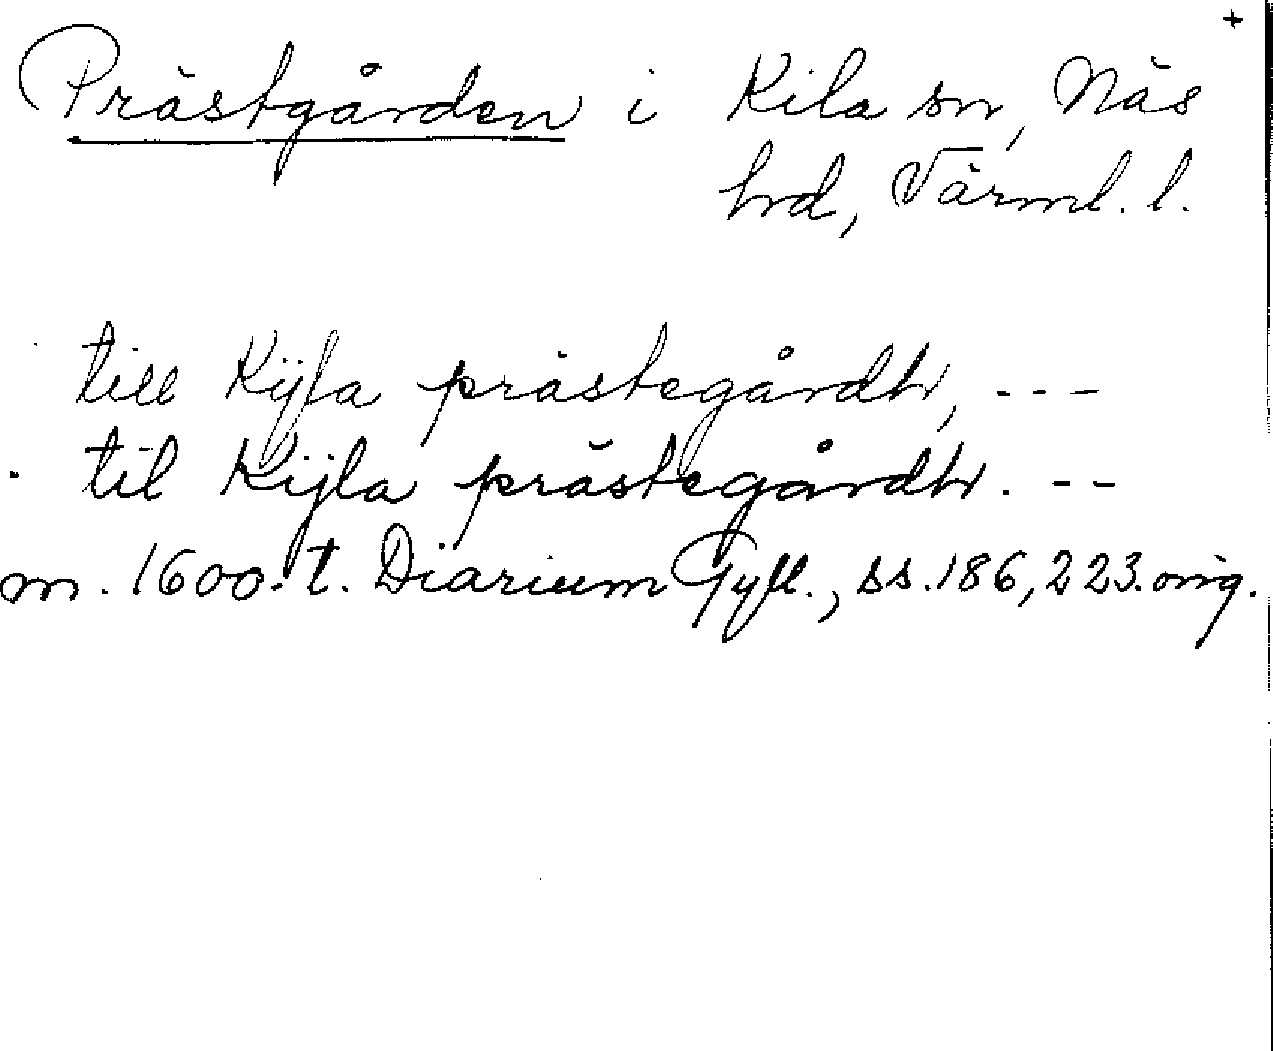 +
Prästgården i Kila sn, Näs
hrd, Värml. l.
till Kijla prästegårdh, ---
til Kijla prästegårdh. --
m. 1600-t. Diarium Gyll., ss. 186, 223. orig.